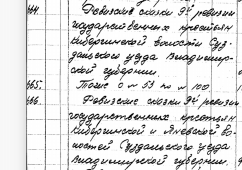 464. Ревизские сказки 9й ревизии
государственных крестьян
Кибергинской волости Суз-
дальского уезда Владимир-
ской губернии.
465. То же с № 53 по № 100
466. Ревизские сказки 9й ревизии
государственных крестьян
Кибергинской и Яневской во-
лостей Суздальского уезда
Владимирской губернии.